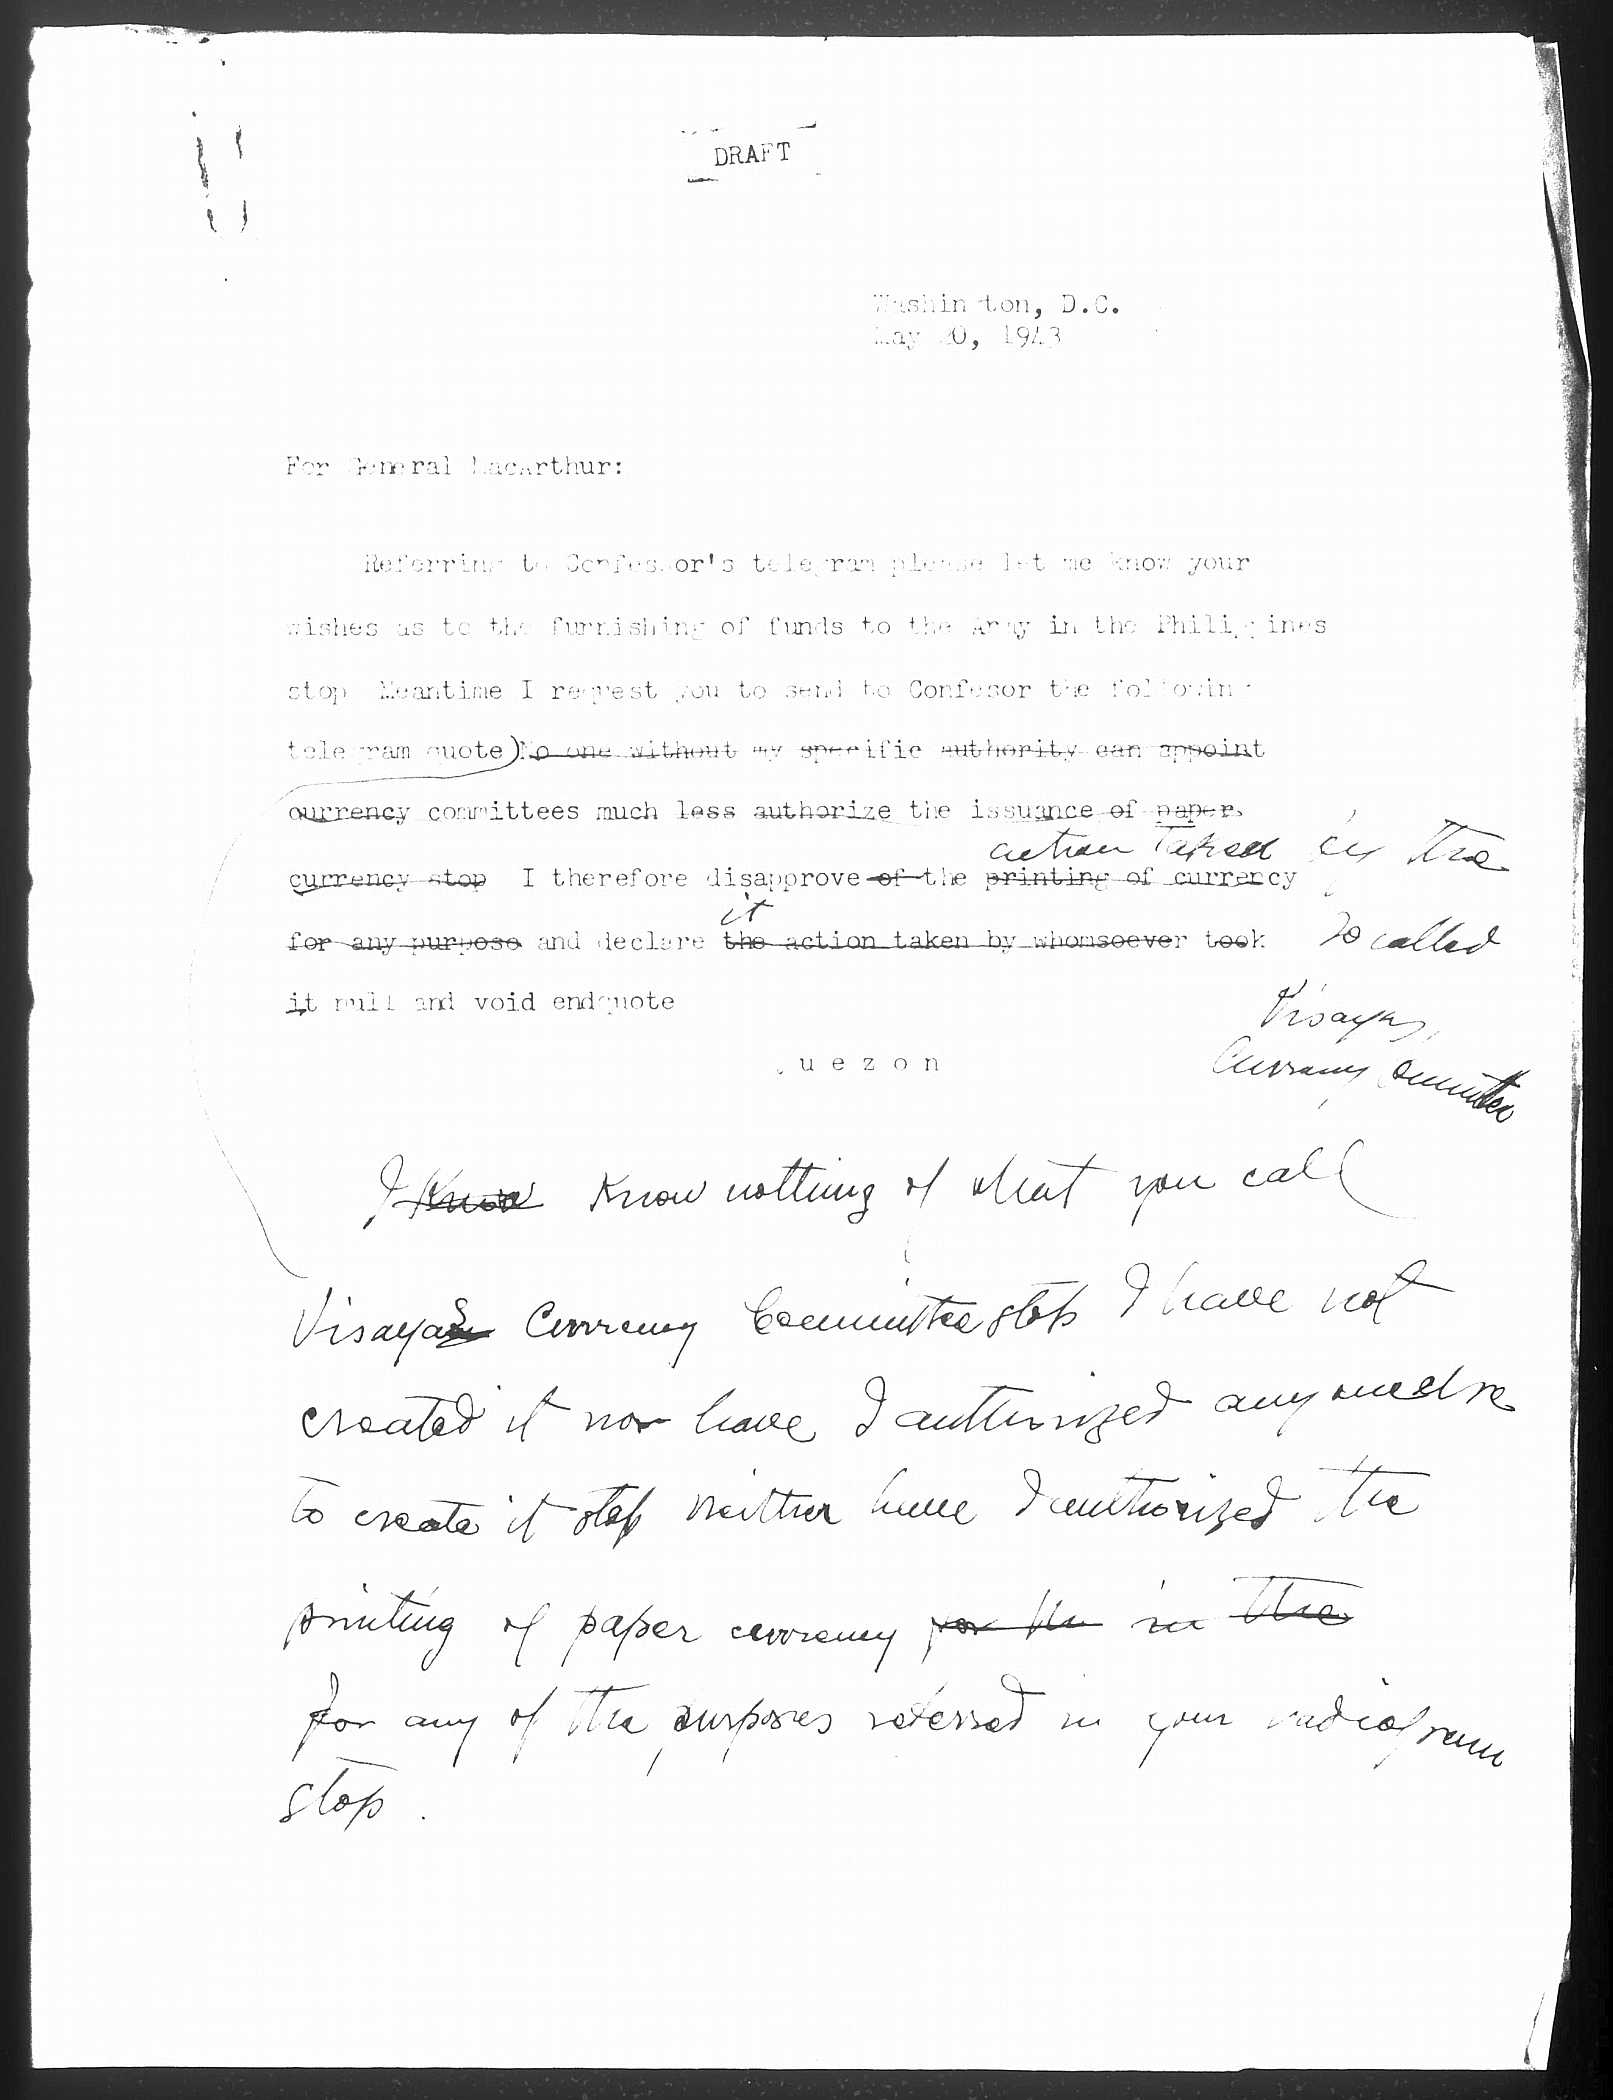 DRAFT
Washington, D.C.
May 20, 1943
For General MacArthur:
Referring to Confessor's telegram please let me know your
wishes as to the furnishing of funds to the Army in the Philippines
stop Meantime I request you to send to Confesor the following
telegram quote) No one without my specific authority can appoint
currency committees much less authorize the issuance of paper
action taken by the
currency stop I therefore disapprove of the printing of currency
it
for any purpose and declare the action taken by whomsoever took so called
it null and void endquote Visayas
Quezon Currency Committee
I know know nothing of what you call
Visayas Currency Committee stop I have not
created it nor have I authorized anyone else
to create it stop neither have I authorized the
printing of paper currency for the in the
for any of the purposes referred in your radiogram
stop.